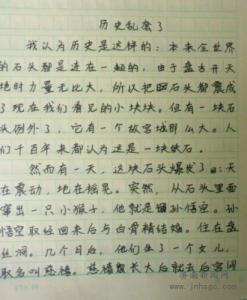 历史乱套了
我认为历史是这样的：本来全世界
的石头都是连在一起的，由于盘古开天
地时力量无比大，所以把石头都震成
了现在我们看见的小块块。但有一块石
头例外了，它有一个故宫城那么大。人
们千百年来都认为这是一块铁石。
然而有一天，这块石头爆发了：天
在震动，地在摇晃。突然，从石头里面
窜出一只小猴子，他就是孙悟空。孙
悟空取经回来后与白骨精结婚。住在盘
丝洞。几个日后，他们生了一个女儿，
取名叫慈禧。慈禧长大后就去后宫
www.jnhsgc.com